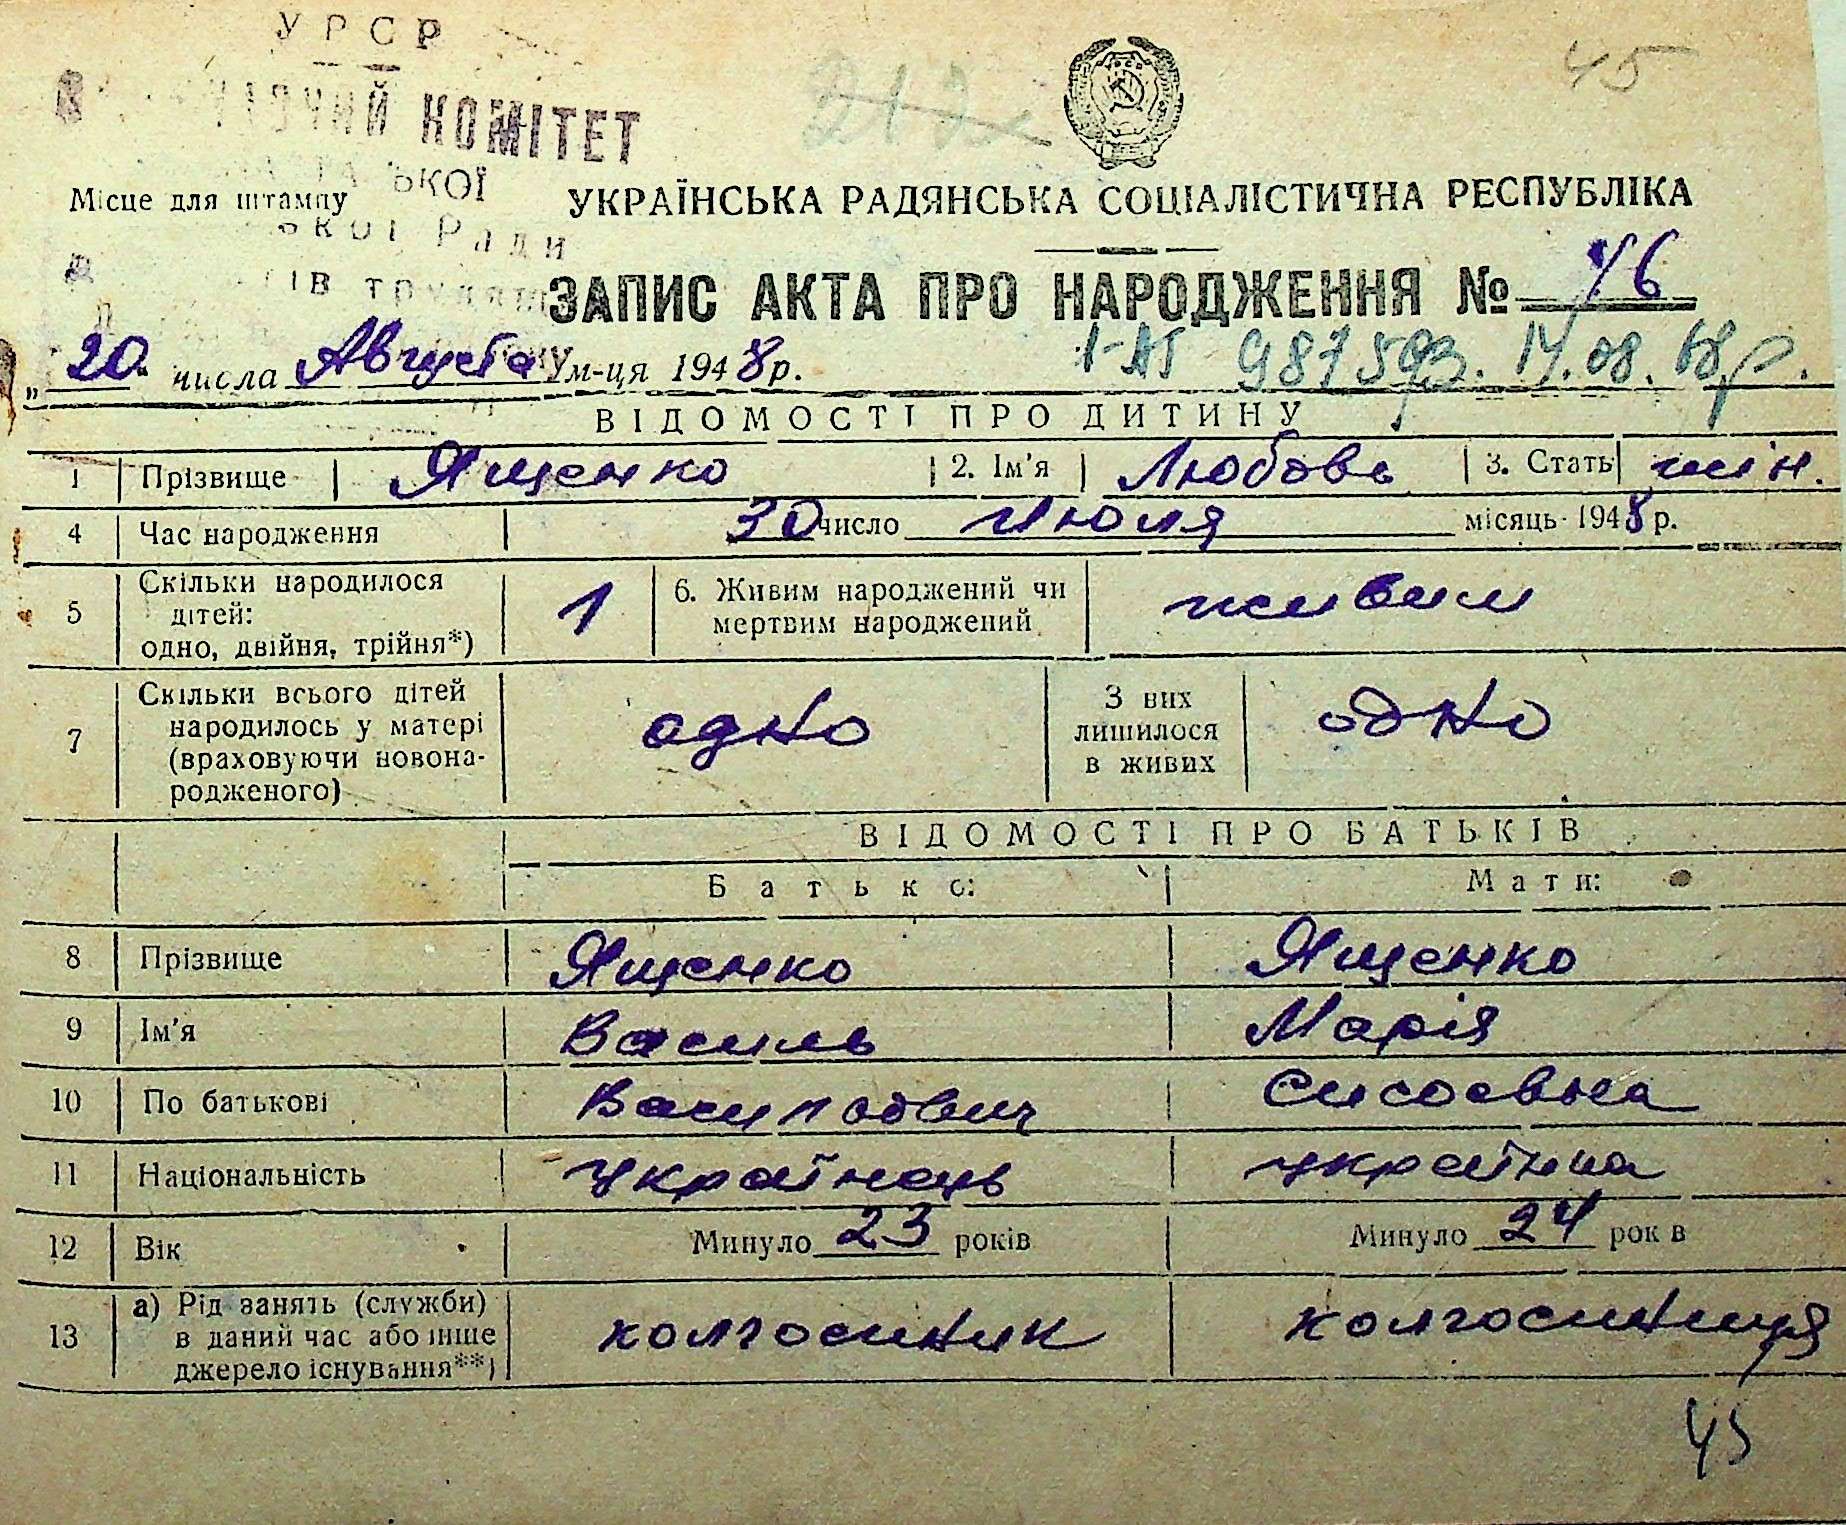 УРСР
КОМІТЕТ
212
45
Місце для штампу
УКРАЇНСЬКА РАДЯНСЬКА СОЦІАЛІСТИЧНА РЕСПУБЛІКА
ЗАПИС АКТА ПРО НАРОДЖЕННЯ № 46
„20" числа Августа м-ця 1948 р.
987593. 14.08.68 р.
ВІДОМОСТІ ПРО ДИТИНУ
1 Прізвище Ященко 2. Ім'я Любовь 3. Стать жін.
4 Час народження 30 число Июля місяць 1948 р.
5 Скільки народилося дітей: одно, двійня, трійня*) 1 6. Живим народжений чи мертвим народжений живим
7 Скільки всього дітей народилось у матері (враховуючи новонародженого) одно З них лишилося в живих одно
ВІДОМОСТІ ПРО БАТЬКІВ
Батько: Мати:
8 Прізвище Ященко Ященко
9 Ім'я Василь Марія
10 По батькові Василович Сисоєвна
11 Національність українець українка
12 Вік Минуло 23 років Минуло 24 рок в
13 а) Рід занять (служби) в даний час або інше джерело існування**) колгоспник колгоспниця
45